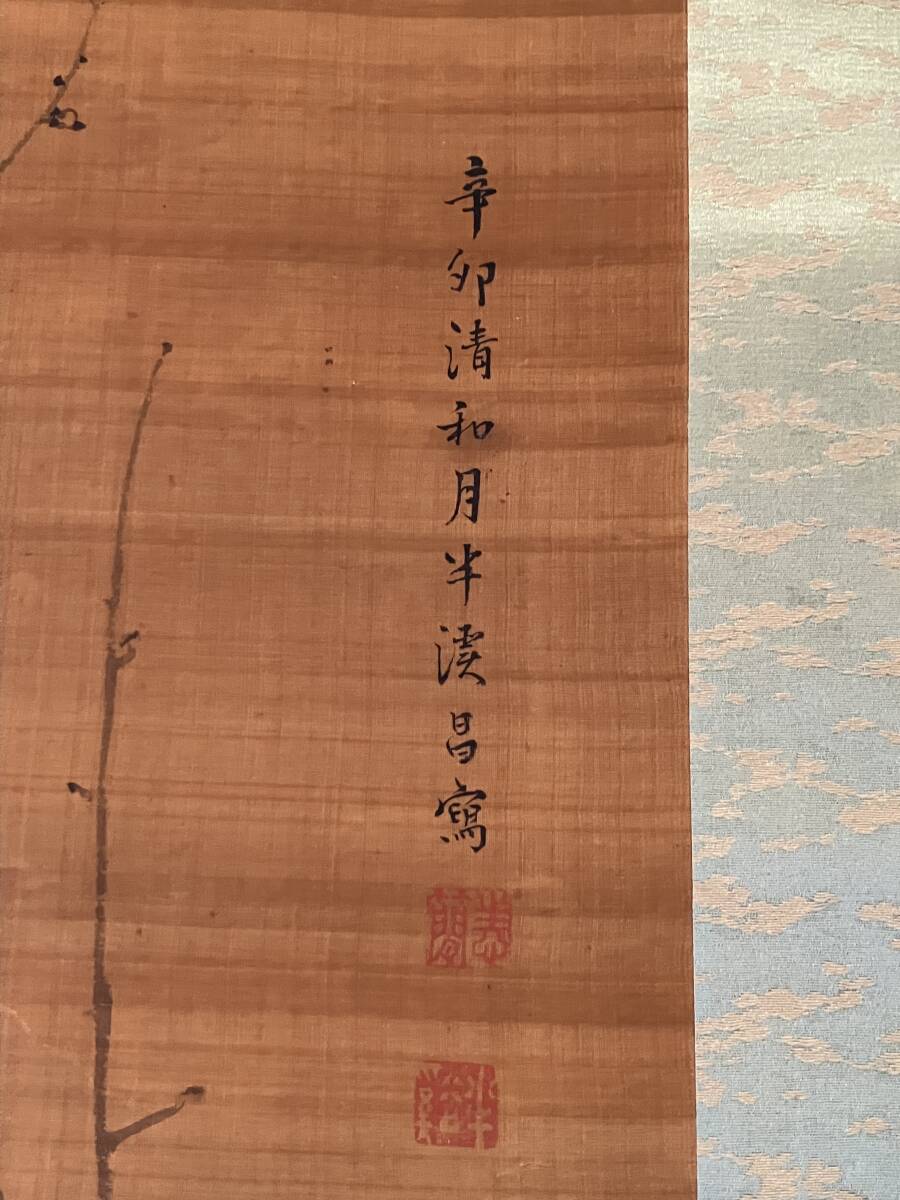 辛卯清和月半溪昌寫